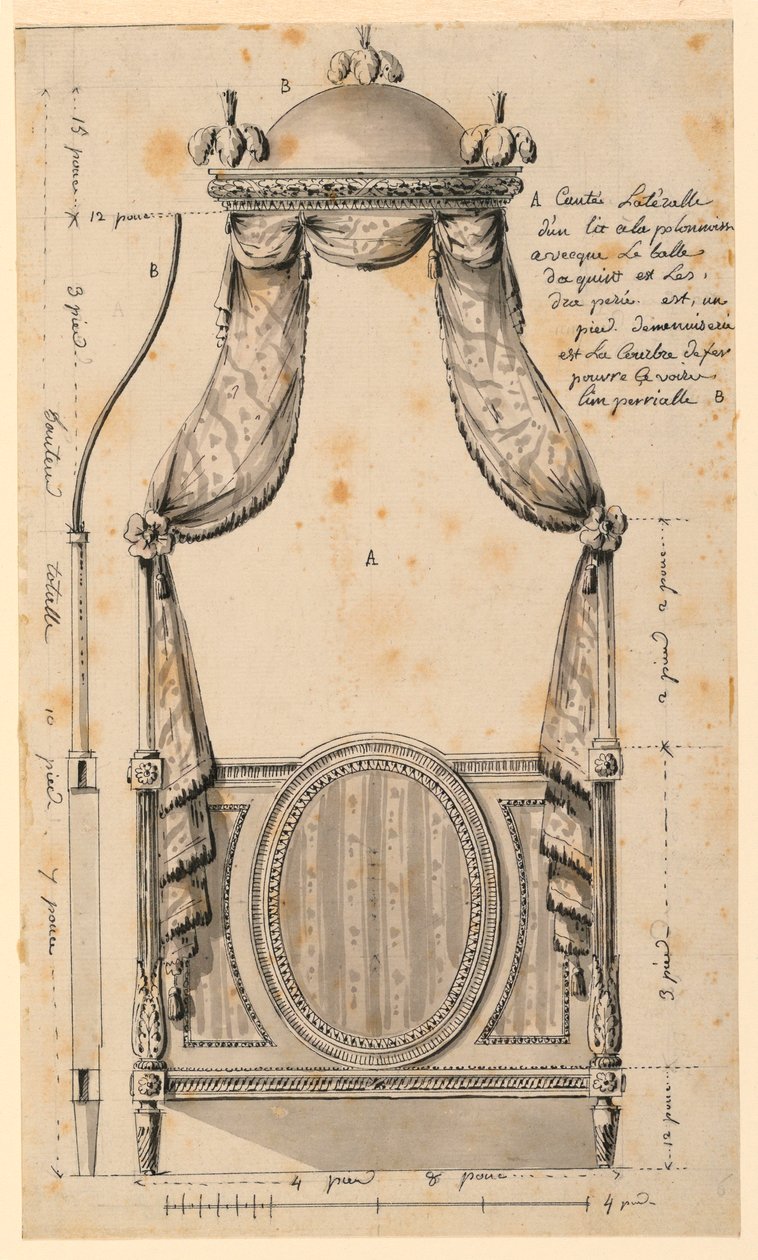 B
15 pouce
12 pouce
B
3 pied
A Canté Latéralle
d'un lit a la polonnoisse
avecque Le balle
daquint est Les
dra perie. est, un
pied. demenuiserie
est La Courbre defer
pouvre Ce voire
lim perrialle B
A
hauteur totalle 10 pied 7 pouce
2 pied 2 pouce
3 pied
12 pouce
4 pied 8 pouce
4 pied